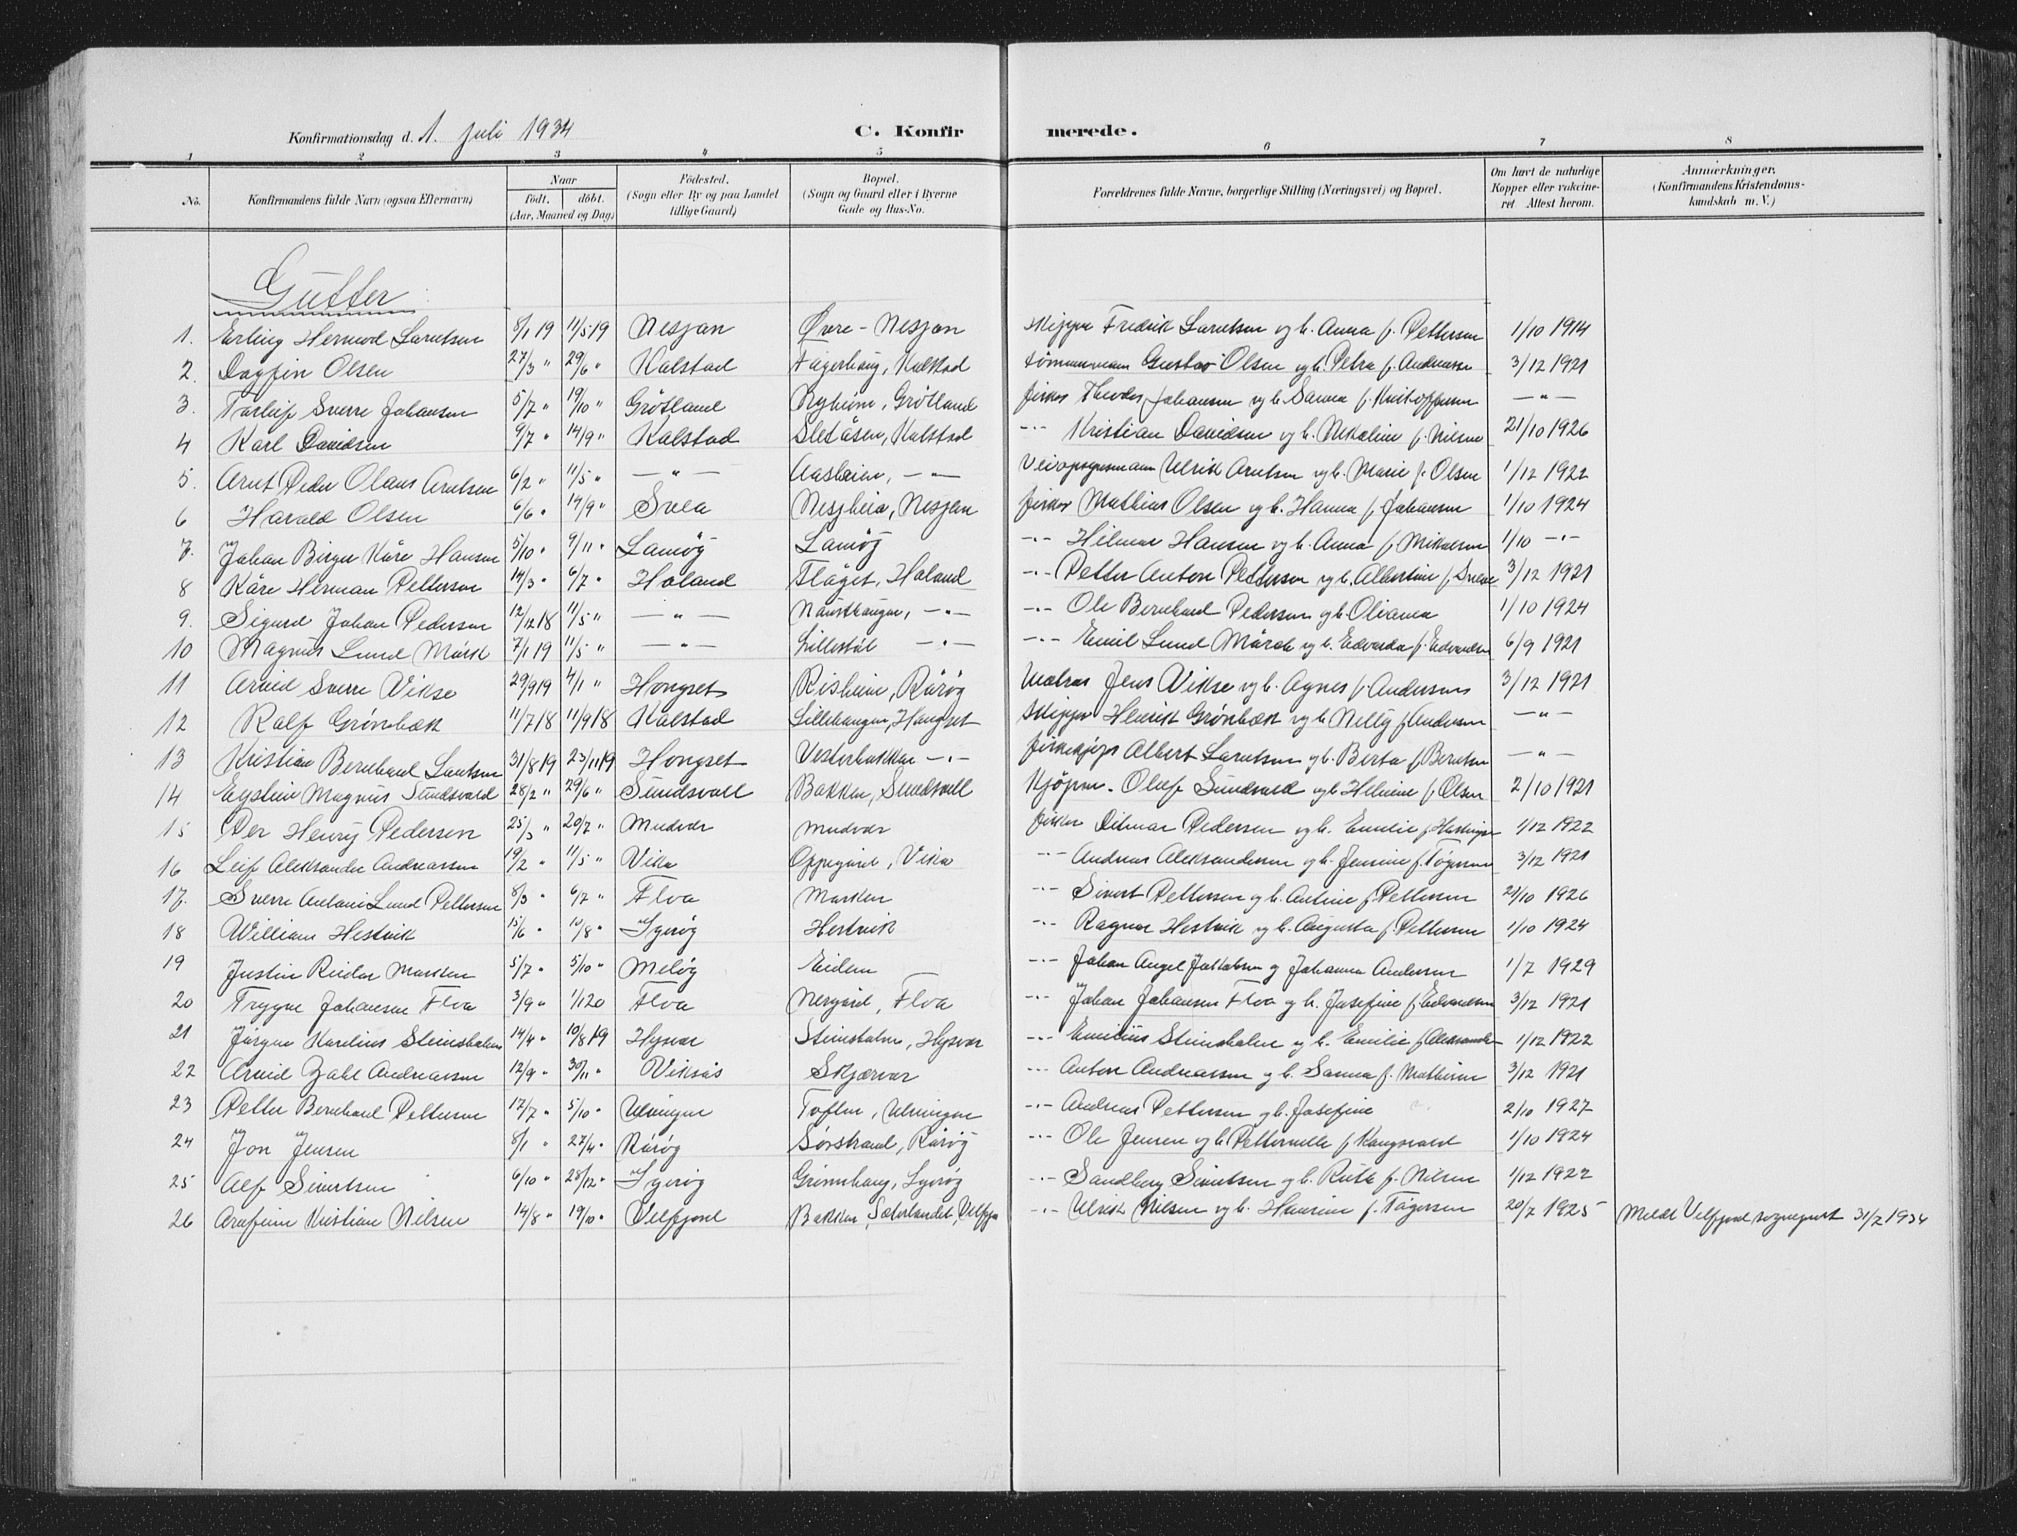 Konfirmationsdag d. 1. juli 1934 C. Konfirmerede.
1 2 3 4 5 6 7 8
No. Konfirmandens fulde Navn (ogsaa Efternavn) Naar født. døbt. (Aar, Maaned og Dag) Fødested. (Sogn eller By og paa Landet tillige Gaard) Bopæl. (Sogn og Gaard eller i Byerne Gade og Hus-No. Forældrenes fulde Navne, borgerlige Stilling (Næringsvei) og Bopæl. Om havt de naturlige Kopper eller vakcineret Attest herom. Anmærkninger. (Konfirmandens Kristendomskundskab m. V.)
Gutter
1. Erling Hermod Larntsen 8/1 19 11/5 19 Nesjan Øvre-Nesjan Skipper Fredrik Larntsen og h. Anna f. Pettersen 1/10 1914
2. Dagfin Olsen 27/3 " 29/6 " Kalstad Fagerhaug, Kalstad tømmermann Gustav Olsen og h. Petra f. 3/12 1921
3. Torleif Sverre Johansen 5/7 " 19/10 " Grøtland Nyheim, Grøtland fisker Theodor Johansen og h. Sanna f. Kristoffersen — " —
4 Karl Davidsen 9/7 " 14/9 " Kalstad Sletåsen, Kalstad -"- Kristian Davidsen og h. Nikoline f. Nilsen 21/10 1926
5. Arnt Peder Olaus Arntsen 6/2 " 11/5 " — " — — " — Veiopsynsmann Ulrik Arntsen og h. Marie f. Olsen 1/12 1922
6 Harald Olsen 6/6 " 14/9 " Svea Nesjheia, Nesjan fisker Mathias Olsen og h. Hanna f. Johansen 1/10 1924
7. Johan Birger Kåre Hansen 5/10 " 9/11 " Lamøy Lamøy -"- Hilmar Hansen og h. Anna f. Mikalsen 1/10 -"-
8 Kåre Herman Pettersen 14/3 " 6/7 " Holand Flåget, Holand -"- Petter Anton Pettersen og h. Albertine f. 3/12 1921
9. Sigurd Johan Pedersen 12/12 18 11/5 " — " — Nausthaugen, — " — -"- Ole Bernhard Pedersen og h. Olianna 1/10 1924
10 Magnus Lund Mørk 7/1 19 11/5 " — " — Lillestøl — " — -"- Emil Lund Mårck og h. Edvarda f. Edvardsen 6/9 1921
11 Arvid Sverre Vikse 29/9 19 4/1 " Hongset Risheim, Rårøy Matros Jens Vikse og h. Agnes f. Andersen 3/12 1921
12 Ralf Grønbæk 11/7 18 11/9 18 Kalstad Lillehaugen, Hongset Skipper Henrik Grønbæk og h. Nelly f. Andersen — " —
13 Kristian Bernhard Larntsen 31/8 19 23/11 19 Hongset Vesterbakken — " — Albert Larntsen og h. Berta f. Berntsen — " —
14 Eystein Magnus Sundsvold 28/2 " 29/6 " Sundsvoll Bakken, Sundsvoll Kjøpm. Oluf Sundsvold og h. Helmine f. Olsen 2/10 1921
15 Per Henry Pedersen 25/3 " 20/7 " Mudvær Mudvær fisker Ditmar Pedersen og h. Emilie f. 1/12 1922
16 Leif Aleksander Andreassen 19/2 " 11/5 " Vika Oppegård, Vika -"- Andreas Aleksandersen og h. Jensine f. Tøgersen 3/12 1921
17. Sverre Antoni Lund Pettersen 8/3 " 6/7 " Flva Marken -"- Sivert Pettersen og h. Antine f. Pettersen 21/10 1926
18 William Hestvik 15/6 " 10/8 " Igerøy Hestvik -"- Ragnar Hestvik og h. Augusta f. Pettersen 1/10 1924
19 Justin Reidar Marken 5/7 " 5/10 " Meløy Eidem -"- Johan Angel Jakobsen og Johanna Andersen 1/7 1929
20 Trygve Johansen Flva 3/9 " 1/1 20 Flva Nergård, Flva -"- Johan Johansen Flva og h. Josefine f. Edvardsen 3/12 1921
21 Jørgen Karelius Steinsholm 14/4 " 10/8 19 Hysvær Steinsholm, Hysvær -"- Emilius Steinsholm og h. Emilie f. 1/12 1922
22 Arvid Zahl Andreassen 12/9 " 30/11 " Viksås Skjærvær -"- Anton Andreassen og h. Sanna f. Mathisen 3/12 1921
23 Petter Bernhard Pettersen 12/7 " 5/10 " Ulvingen Toften, Ulvingen -"- Andreas Pettersen og h. Josefine 2/10 1927
24 Jon Jensen 8/1 " 27/4 " Rårøy Sørstrand, Rårøy -"- Ole Jensen og h. Petternelle f. Kongsvold 1/10 1924
25 Alf Sivertsen 6/10 " 28/12 " Igerøy Grønnhaug, Igerøy -"- Sandberg Sivertsen og h. Ruth f. Nilsen 1/12 1922
26 Arnfinn Kristian Nilsen 14/8 " 19/10 " Velfjord Bakken, Sæterlandet, -"- Ulrik Nilsen og h. Hansine f. Tøgersen 20/7 1925 Meldt Velfjord sogneprest 31/7 1934